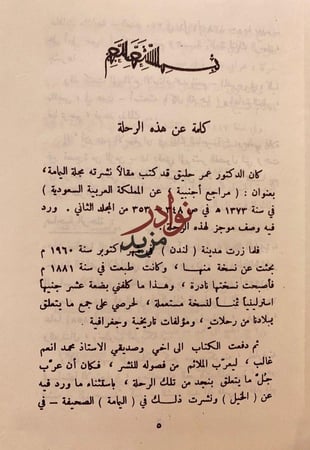 كلمة عن هذه الرحلة
كان الدكتور عمر حليق قد كتب مقالاً نشرته مجلة اليمامة،
بعنوان : ( مراجع أجنبية عن المملكة العربية السعودية )
في سنة ١٣٧٣ هـ في ص ٣٤٨ ٣٥٣ من المجلد الثاني . ورد
فيه وصف موجز لهذه الر
فلما زرت مدينة ( لندن ) كتوبر سنة ١٩٦٠ م
بحثت عن نسخة منها ، وكانت طبعت في سنة ١٨٨١ م
فأصبحت نسختها نادرة ، وهذا ما كلفني بضعة عشر جنيهاً
استرلينياً ثمناً لنسخة مستعملة ، لحرصي على جمع ما يتعلق
ببلادنا من رحلات ، ومؤلفات تاريخية وجغرافية
ثم دفعت الكتاب الى اخي وصديقي الاستاذ محمد انعم
غالب ، ليعرّب الملائم من فصوله للنشر ، فكان أن عرّب
جُلّ ما يتعلق بنجد من تلك الرحلة ، باستثناء ما ورد فيه
عن ( الخيل ) ونشرت ذلك في ( اليمامة ) الصحيفة – في
٥
نوادر
مزيد